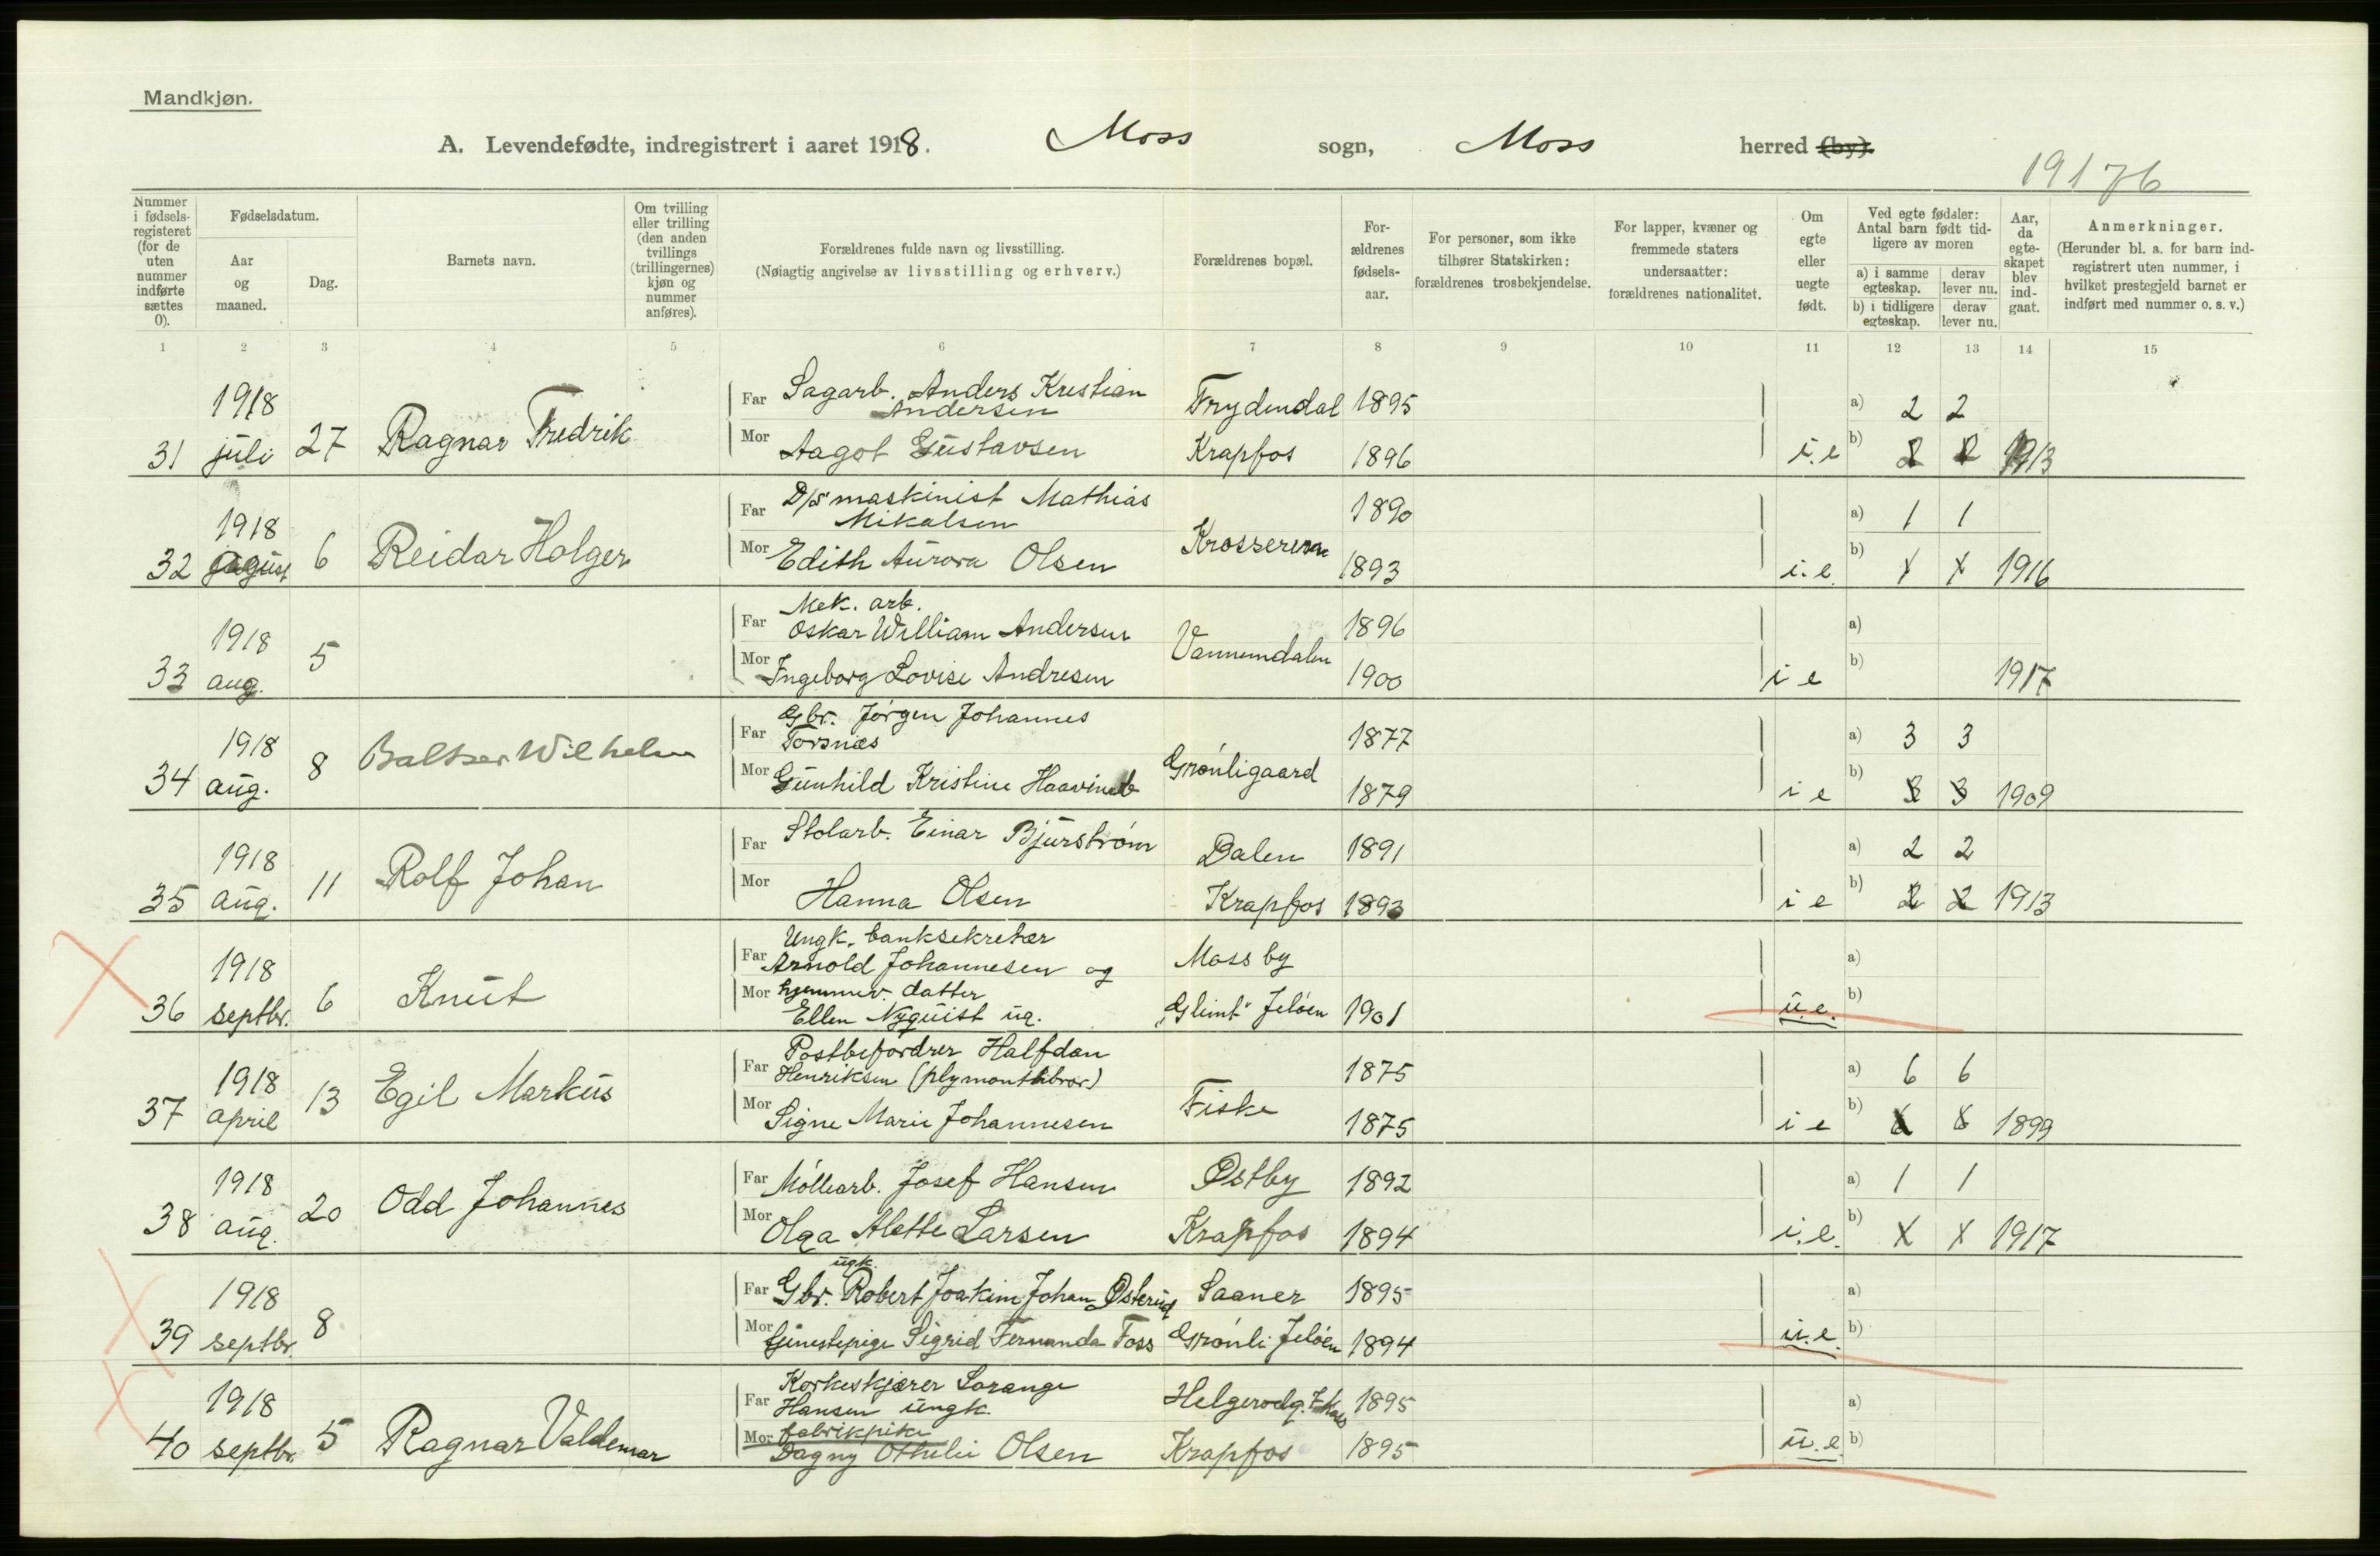 Mandkjøn.
A. Levendefødte, indregistrert i aaret 1918. Moss sogn, Moss herred (by).
19176
Nummer i fødsels-registeret (for de uten nummer indførte sættes 0).
Fødselsdatum.
Aar og maaned.
Dag.
Barnets navn.
Om tvilling eller trilling (den anden tvillings (trillingernes) kjøn og nummer anføres).
Forældrenes fulde navn og livsstilling.
(Nøiagtig angivelse av livsstilling og erhverv.)
Forældrenes bopæl.
For-ældrenes fødsels-aar.
For personer, som ikke tilhører Statskirken: forældrenes trosbekjendelse.
For lapper, kvæner og fremmede staters undersaatter: forældrenes nationalitet.
Om egte eller uegte født.
Ved egte fødsler: Antal barn født tid-ligere av moren
a) i samme egteskap. derav lever nu.
b) i tidligere egteskap. derav lever nu.
Aar, da egte-skapet blev ind-gaat.
Anmerkninger.
(Herunder bl. a. for barn ind-registrert uten nummer, i hvilket prestegjeld barnet er indført med nummer o. s. v.)
1 2 3 4 5 6 7 8 9 10 11 12 13 14 15
1918 Far Sagarb. Anders Kristian Andersen Frydendal 1895 a) 2 2
31 juli 27 Ragnar Fredrik Mor Aagot Gustavsen Krapfos 1896 i.e b) 2 2 1913
1918 Far D/S maskinist Mathias Mikalsen 1890 a) 1 1
32 august 6 Reidar Holger Mor Edith Aurora Olsen 1893 i.e. b) 1 1 1916
1918 Far Mek. arb. Oskar William Andersen Vannemdalen 1896 a)
33 aug. 5 Mor Ingeborg Lovise Andresen 1900 i e b) 1917
1918 Far Gbr. Jørgen Johannes Torsnæs Grønligaard 1877 a) 3 3
34 aug. 8 Baltzer Wilhelm Mor Gunhild Kristine 1879 i e b) 3 3 1909
1918 Far Stolarb. Einar Bjurstrøm Dalen 1891 a) 2 2
35 aug. 11 Rolf Johan Mor Hanna Olsen Krapfos 1893 i e b) 2 2 1913
1918 Far Ungk. banksekretær Arnold Johannesen og Moss by a)
36 septbr. 6 Knut Mor hjemmev. datter Ellen Nyquist ug. "Glimt" Jeløen 1901 u.e. b)
1918 Far Postbefordrer Halfdan Henriksen (plymouthbror) Fiske 1875 a) 6 6
37 april 13 Egil Markus Mor Signe Marie Johannesen 1875 i e b) 6 6 1899
1918 Far Møllearb. Josef Hansen Østby 1892 a) 1 1
38 aug. 20 Odd Johannes Mor Olga Alette Larsen Krapfos 1894 i.e. b) 1 1 1917
1918 Far Gbr. ugk. Robert Joakim Johan Østerud Saaner 1895 a)
39 septbr. 8 Mor tjenestepige Sigrid Fernanda Foss Grønli Jeløen 1894 u.e. b)
1918 Far Korkeskjærer Sorange Hansen ungk. 1895 a)
40 septbr. 5 Ragnar Valdemar Mor fabrikpike Dagny Othilie Olsen Krapfos 1895 u.e. b)